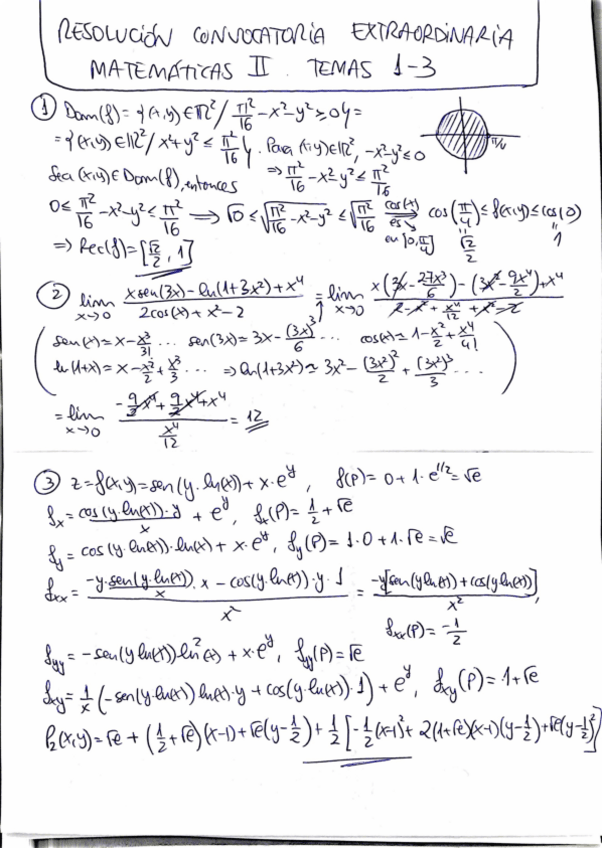 RESOLUCIÓN CONVOCATORIA EXTRAORDINARIA
MATEMÁTICAS II. TEMAS 1-3
① Dom(f) = {(x,y)∈ℝ² / π²/16 - x² - y² ≥ 0} =
= {(x,y)∈ℝ² / x² + y² ≤ π²/16}. Para (x,y)∈ℝ², -x²-y² ≤ 0
π/4
Sea (x,y)∈Dom(f), entonces ⇒ π²/16 - x² - y² ≤ π²/16
0 ≤ π²/16 - x² - y² ≤ π²/16 ⟹ √0 ≤ √(π²/16 - x² - y²) ≤ √(π²/16) cos(x) ⟹ es ↓ en [0, π/4] cos(π/4) ≤ f(x,y) ≤ cos(0)
⇒ Rec(f) = [√2/2, 1] √2/2 1
② lim x→0 (x sen(3x) - ln(1+3x²) + x⁴)/(2cos(x) + x² - 2) = lim x→0 (x(3x - 27x³/6) - (3x² - 9x⁴/2) + x⁴)/(2 - x² + x⁴/12 + x² - 2)
(sen(x) ≃ x - x³/3! ... sen(3x) = 3x - (3x)³/6 ... cos(x) ≃ 1 - x²/2 + x⁴/4!
ln(1+x) = x - x²/2 + x³/3 ... ⇒ ln(1+3x²) ≃ 3x² - (3x²)²/2 + (3x²)³/3 ...)
= lim x→0 (-9/2 x⁴ + 9/2 x⁴ + x⁴)/(x⁴/12) = 12
③ z = f(x,y) = sen(y·ln(x)) + x·e^y, f(P) = 0 + 1·e^(1/2) = √e
f_x = cos(y·ln(x))·y/x + e^y, f_x(P) = 1/2 + √e
f_y = cos(y·ln(x))·ln(x) + x·e^y, f_y(P) = 1·0 + 1·√e = √e
f_xx = (-y·sen(y·ln(x))·y/x·x - cos(y·ln(x))·y·1)/x² = -y[sen(y ln(x)) + cos(y ln(x))]/x²,
f_xx(P) = -1/2
f_yy = -sen(y ln(x)) ln²(x) + x·e^y, f_yy(P) = √e
f_xy = 1/x (-sen(y·ln(x)) ln(x)·y + cos(y·ln(x))·1) + e^y, f_xy(P) = 1 + √e
P₂(x,y) = √e + (1/2 + √e)(x-1) + √e(y - 1/2) + 1/2 [-1/2 (x-1)² + 2(1+√e)(x-1)(y - 1/2) + √e(y - 1/2)²]